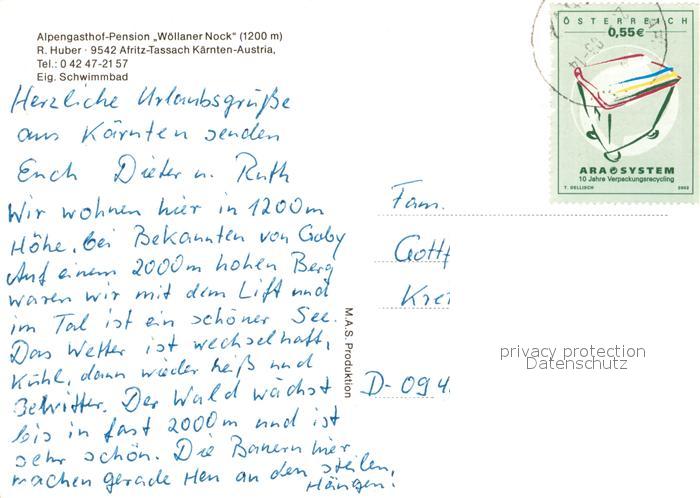 Alpengasthof-Pension „Wöllaner Nock" (1200 m)
R. Huber · 9542 Afritz-Tassach Kärnten-Austria,
Tel.: 0 42 47-21 57
Eig. Schwimmbad
Herzliche Urlaubsgrüße
aus Kärnten senden
Euch Dieter u. Ruth
Wir wohnen hier in 1200m
Höhe, bei Bekannten von Gaby
Auf einem 2000m hohen Berg
waren wir mit dem Lift und
im Tal ist ein schöner See.
Das Wetter ist wechselhaft,
kühl, dann wieder heiß und
Gewitter. Der Wald wächst
bis in fast 2000m und ist
sehr schön. Die Bauern hier
machen gerade Heu an den steilen,
Hängen!
M.A.S. Produktion
Fam.
Gottf
Krei
D- 094
privacy protection
Datenschutz
ÖSTERREICH
0,55€
ARA SYSTEM
10 Jahre Verpackungsrecycling
T. GELLISCH
2003